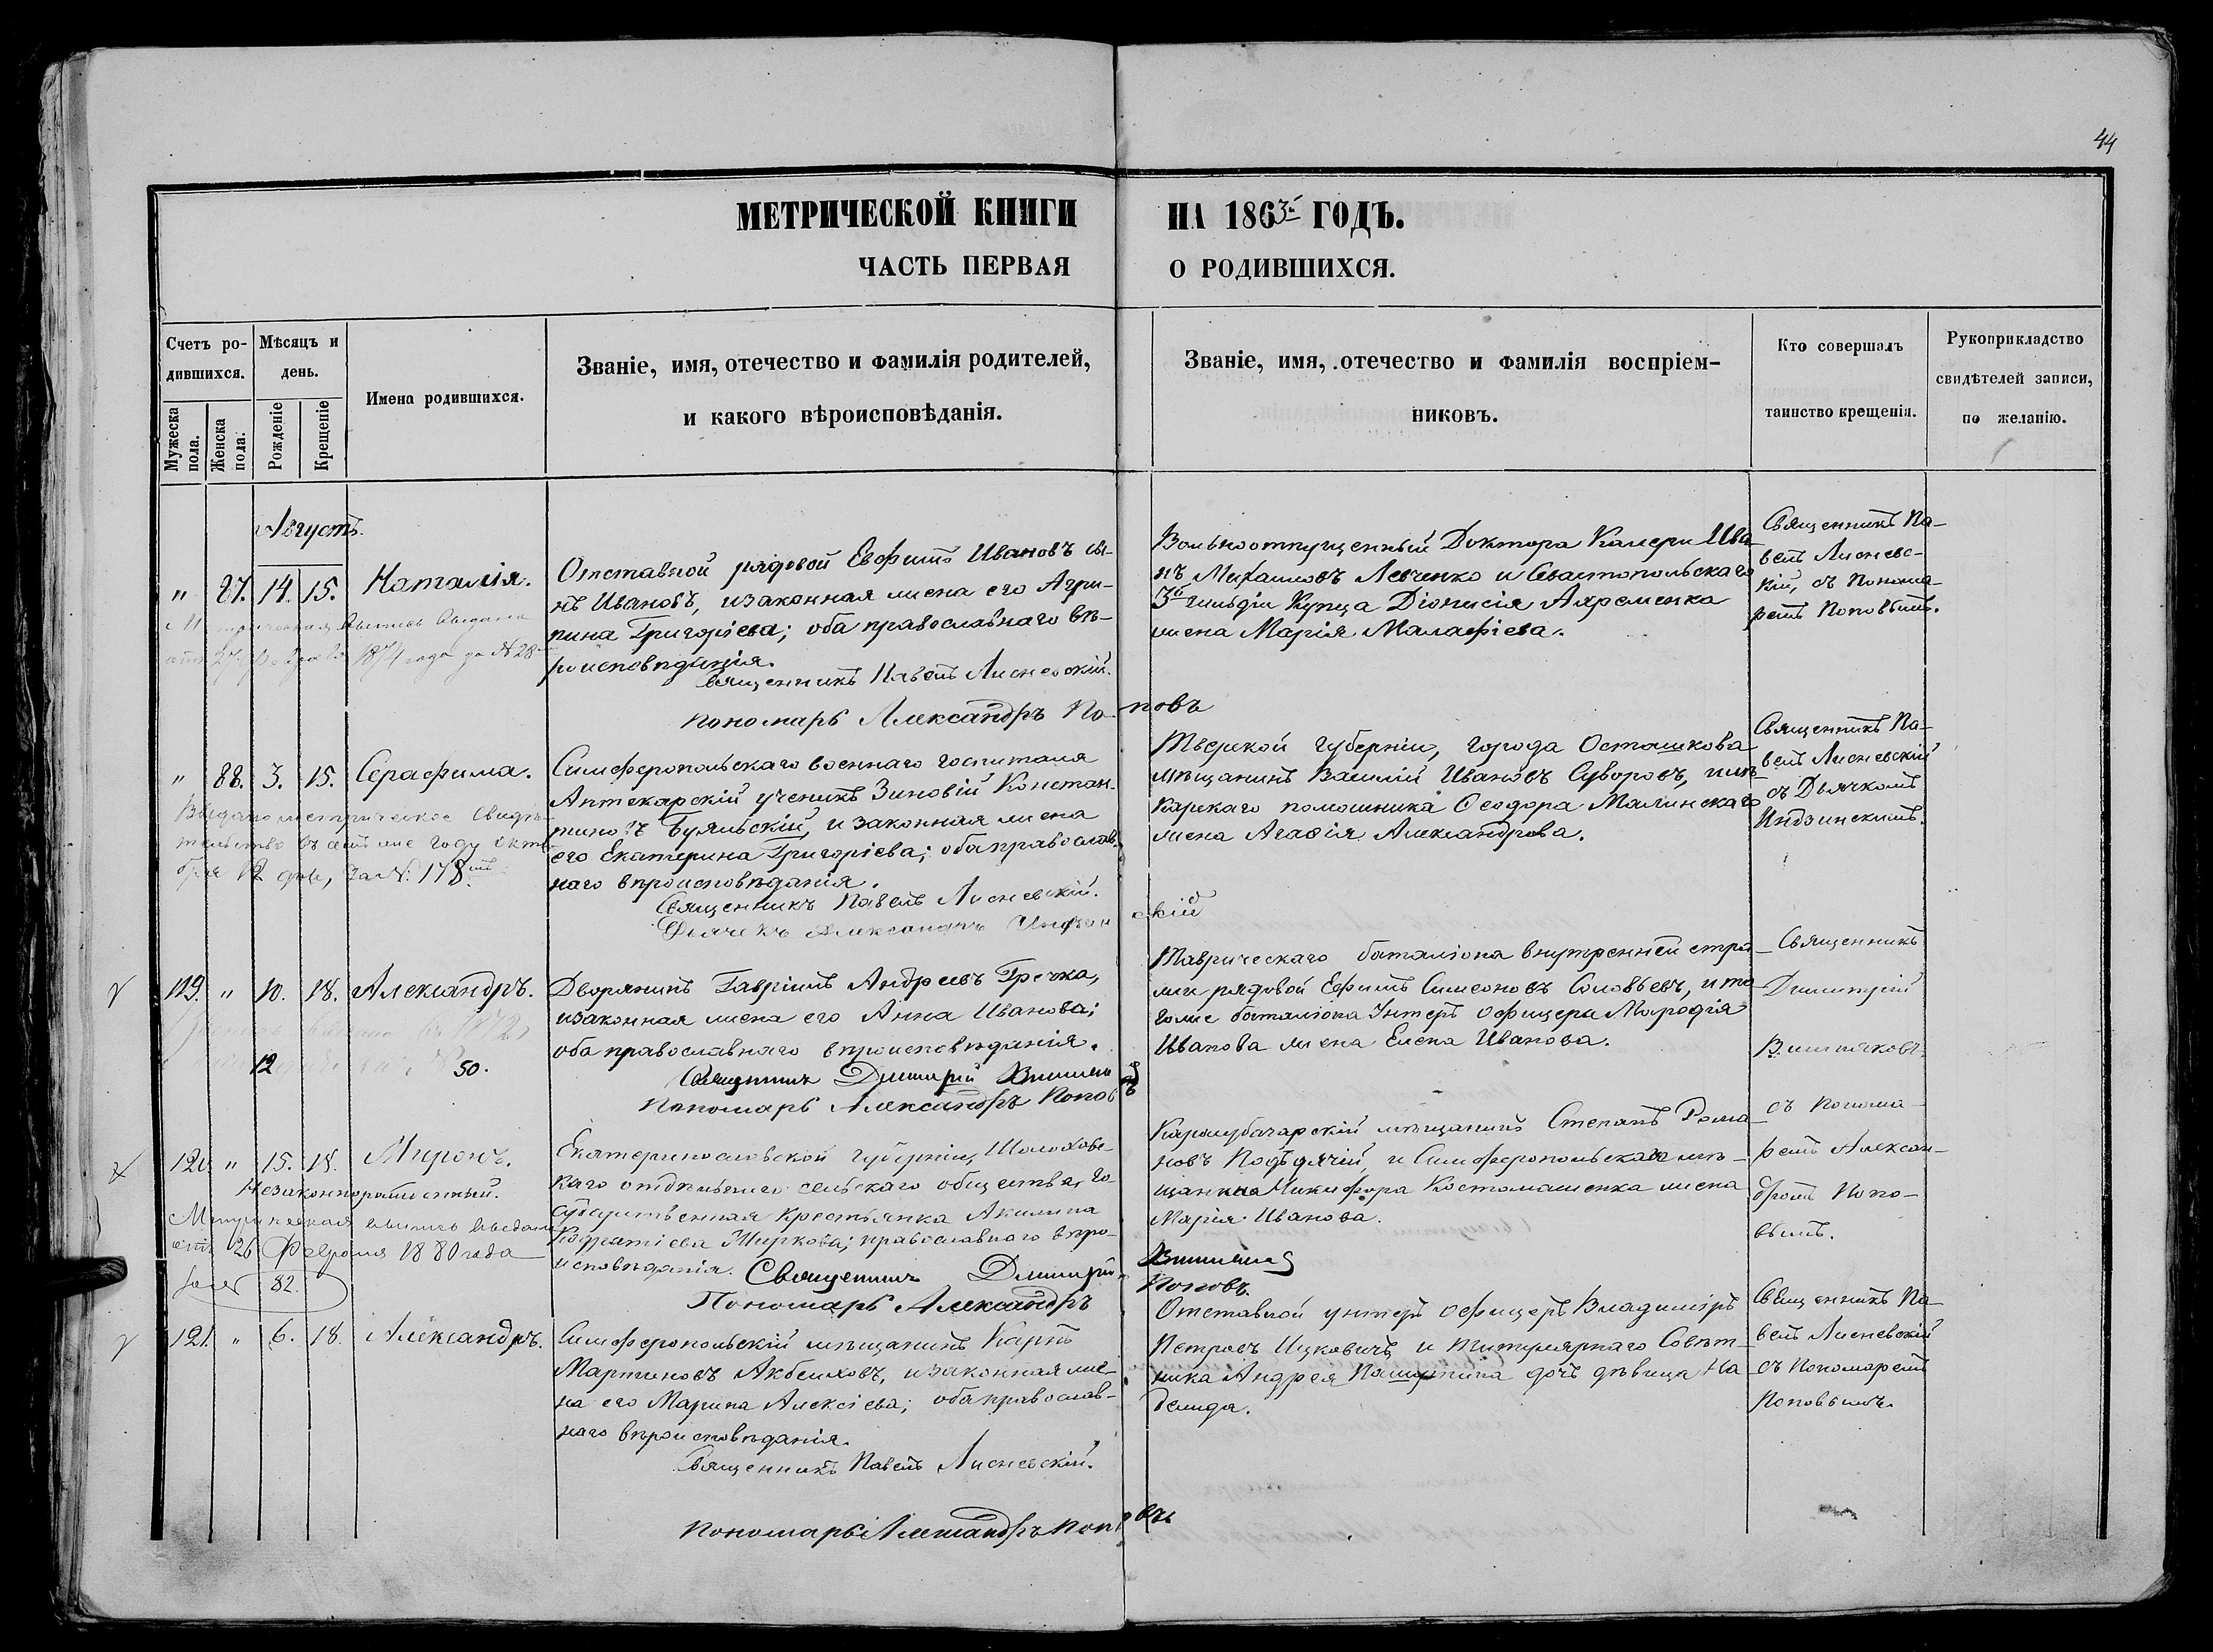 44
МЕТРИЧЕСКОЙ КНИГИ НА 1863й ГОДЪ.
ЧАСТЬ ПЕРВАЯ О РОДИВШИХСЯ.
Счетъ родившихся.
Мужеска пола.
Женска пола.
Мѣсяцъ и день.
Рожденіе
Крещеніе
Имена родившихся.
Званіе, имя, отечество и фамилія родителей,
и какого вѣроисповѣданія.
Званіе, имя, отечество и фамилія воспріем-
никовъ.
Кто совершалъ
таинство крещенія.
Рукоприкладство
свидѣтелей записи,
по желанію.
Августъ.
" 87. 14. 15. Наталія.
Метрическая выпись выдана
1874 года за № 28
Отставной рядовой Евфимъ Ивановъ сы-
нъ Ивановъ, и законная жена его Агри-
пина Григоріева; оба православнаго вѣ-
роисповѣданія.
Священникъ Павелъ Лисневскій.
Пономарь Александръ Поповъ
Вольноотпущенный Доктора Калери Ива-
нъ Михаиловъ Левченко и Севастопольскаго
3й гильдіи Купца Діонисія Ахременка
жена Марія Малафіева.
Священникъ Па-
велъ Лисневс-
кій, съ Понома-
ремъ Поповымъ.
" 88. 3. 15. Серафима.
Выдано метрическое свидѣ-
тельство въ семъ же году Октя-
бря 12 дня, за №. 178.мъ
Симферопольскаго военнаго госпиталя
Аптекарскій ученикъ Зиновій Констан-
тиновъ Буяльскій, и законная жена
его Екатерина Григоріева; оба православ-
наго вѣроисповѣданія.
Священникъ Павелъ Лисневскій.
Дьячекъ Александръ Индзинскій
Тверской губерніи, города Осташкова
мѣщанинъ Василій Ивановъ Суворовъ, и лѣ-
карскаго помошника Ѳеодора Малинскаго
жена Агафія Александрова.
Священникъ Па-
велъ Лисневскій
съ Дьячкомъ
Индзинскимъ.
119. " 10. 18. Александръ.
12 50.
Дворянинъ Гавріилъ Андреевъ Гречка,
и законная жена его Анна Иванова;
оба православнаго вѣроисповѣданія.
Священникъ Димитрій
Пономарь Александръ Поповъ
Таврическаго баталіона внутренней стра-
жи рядовой Ефимъ Симеоновъ Соловьевъ, и то-
гоже баталіона Унтеръ офицера
Иванова жена Елена Иванова.
Священникъ
Димитрій
съ Понома-
ремъ Алексан-
дромъ Попо-
вымъ.
120. " 15. 18. Миронъ.
Незаконнорожденный.
Метрическая выпись выдана
отъ 26 Февраля 1880 года
за № 82.
Екатеринославской губерніи,
каго отдѣльнаго сельскаго общества, го-
сударственная крестьянка Акилина
Кодратіева Жиркова; православнаго вѣро-
исповѣданія. Священникъ Димитрій
Пономарь Александръ Поповъ.
Карасубазарскій мѣщанинъ Степанъ Рома-
новъ и Симферопольскаго мѣ-
щанина Никифора Костомашенка жена
Марія Иванова.
121. " 6. 18. Александръ.
Симферопольскій мѣщанинъ Карпъ
Мартиновъ Акбелиховъ, и законная же-
на его Марина Алексіева; оба православ-
наго вѣроисповѣданія.
Священникъ Павелъ Лисневскій.
Пономарь Александръ Поповъ
Отставной унтеръ офицеръ Владиміръ
Петровъ Ицковичъ и титулярнаго Совѣт-
ника Андрея дочь дѣвица На-
дежда.
Священникъ Па-
велъ Лисневскій
съ Пономаремъ
Поповымъ.